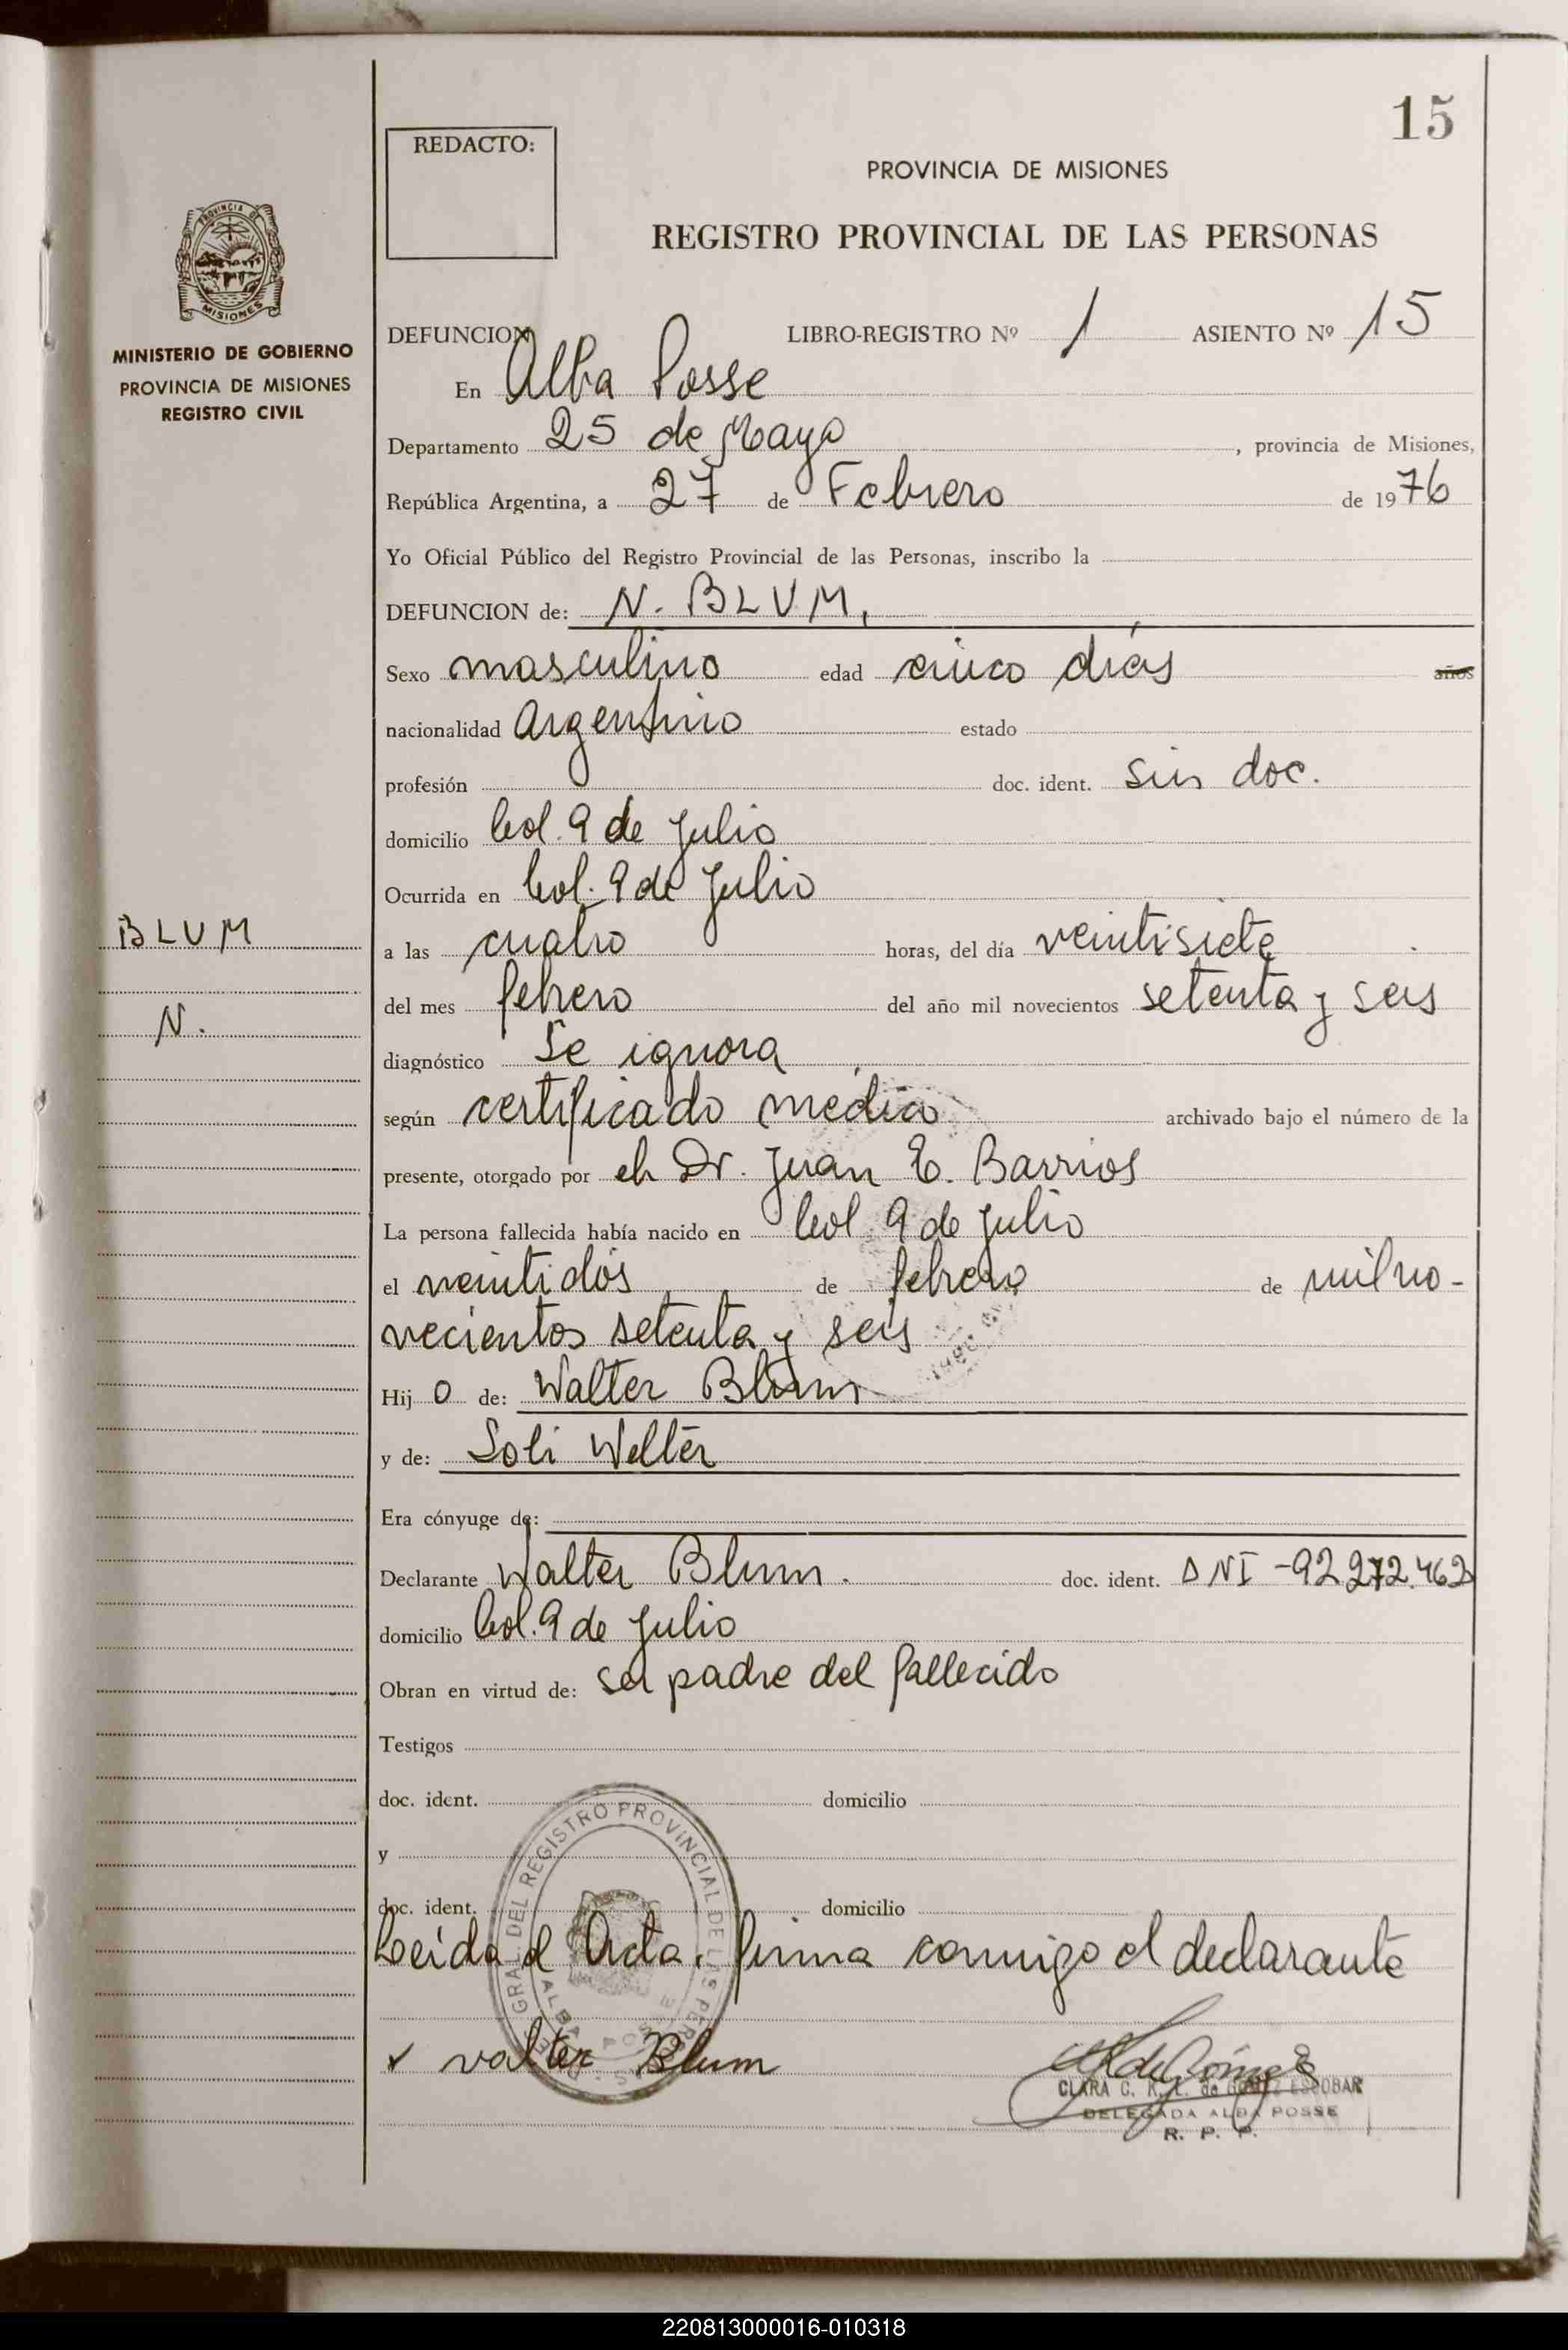 15
REDACTO:
PROVINCIA DE MISIONES
REGISTRO PROVINCIAL DE LAS PERSONAS
PROVINCIA DE
MISIONES
MINISTERIO DE GOBIERNO
PROVINCIA DE MISIONES
REGISTRO CIVIL
DEFUNCION LIBRO-REGISTRO Nº 1 ASIENTO Nº 15
En Alba Posse
Departamento 25 de Mayo, provincia de Misiones,
República Argentina, a 27 de Febrero de 1976
Yo Oficial Público del Registro Provincial de las Personas, inscribo la
DEFUNCION de: N. BLUM,
Sexo masculino edad cinco días años
nacionalidad Argentino estado
profesión doc. ident. sin doc.
domicilio Col. 9 de Julio
Ocurrida en Col. 9 de Julio
BLUM
N.
a las cuatro horas, del día veintisiete
del mes febrero del año mil novecientos setenta y seis
diagnóstico Se ignora
según certificado médico archivado bajo el número de la
presente, otorgado por el Dr. Juan E. Barrios
La persona fallecida había nacido en Col. 9 de Julio
el veintidós de febrero de mil no-
vecientos setenta y seis
Hijo de: Walter Blum
y de: Loli Welter
Era cónyuge de:
Declarante Walter Blum. doc. ident. DNI -92.272.462
domicilio Col. 9 de Julio
Obran en virtud de: ser padre del fallecido
Testigos
doc. ident. domicilio
y
doc. ident. domicilio
Leída el Acta, firma conmigo el declarante
GRAL DEL REGISTRO PROVINCIAL DE LAS PERSONAS
ALBA POSSE
valter Blum
CLARA C. K. L. de GOMEZ ESCOBAR
DELEGADA ALBA POSSE
R. P. P.
220813000016-010318